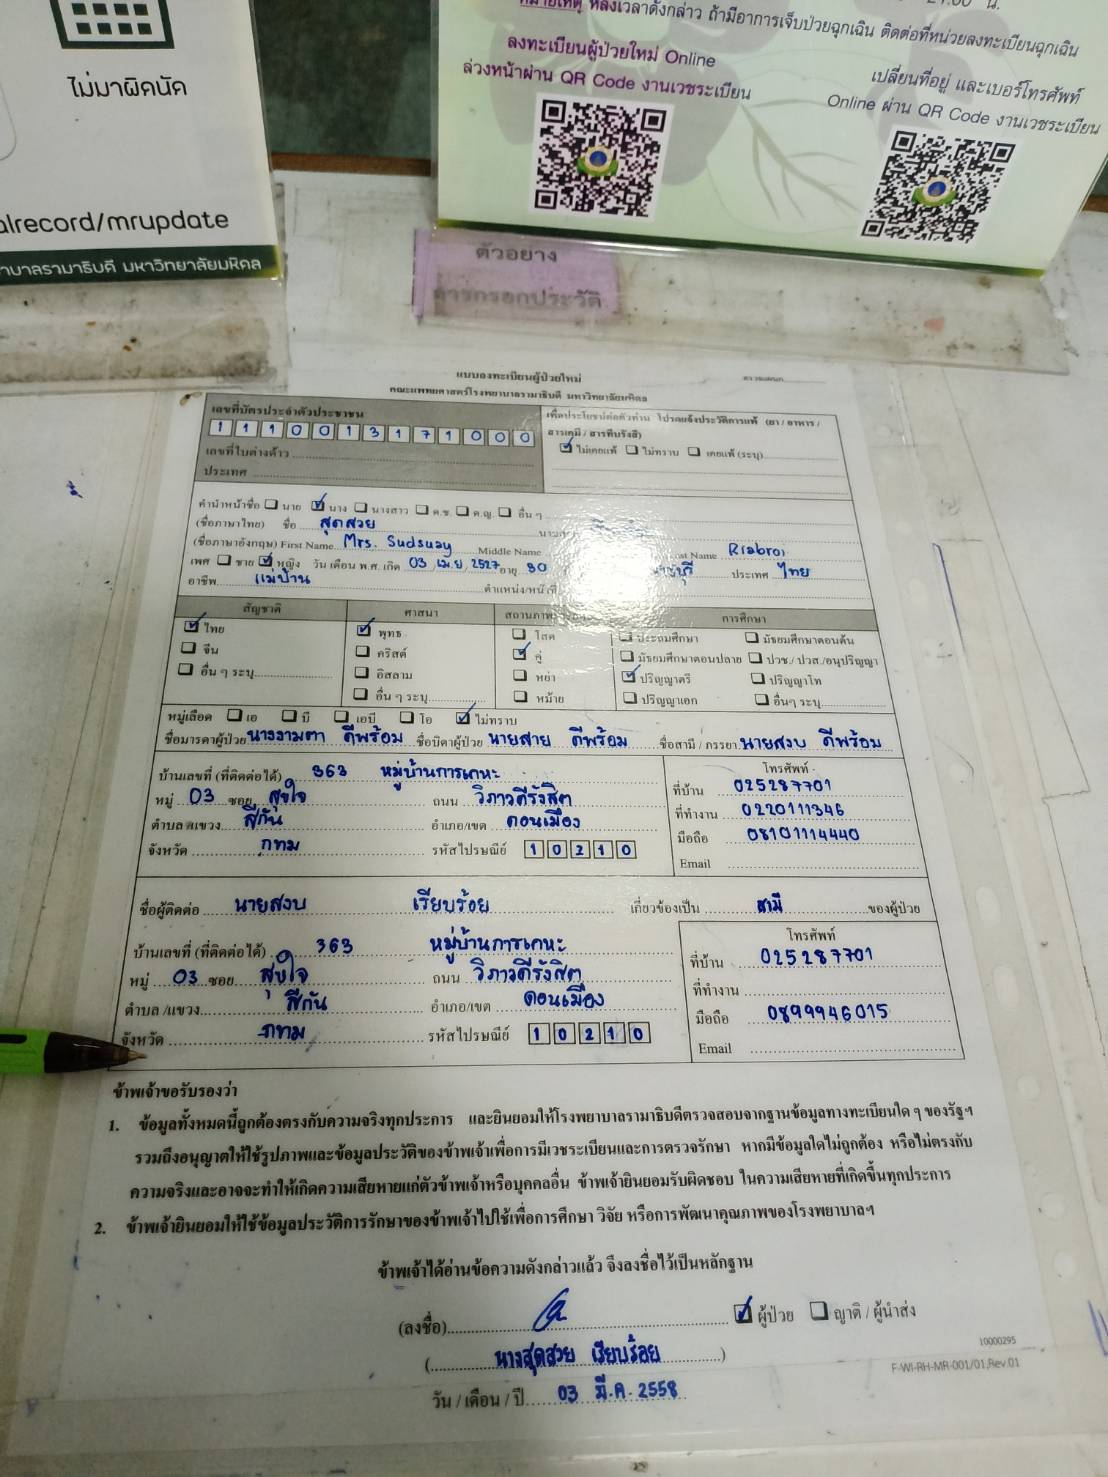 ไม่มาผิดนัด
alrecord/mrupdate
าบาลรามาธิบดี มหาวิทยาลัยมหิดล
หมายเหตุ หลังเวลาดังกล่าว ถ้ามีอาการเจ็บป่วยฉุกเฉิน ติดต่อที่หน่วยลงทะเบียนฉุกเฉิน
ลงทะเบียนผู้ป่วยใหม่ Online
ล่วงหน้าผ่าน QR Code งานเวชระเบียน
เปลี่ยนที่อยู่ และเบอร์โทรศัพท์
Online ผ่าน QR Code งานเวชระเบียน
ตัวอย่าง
การกรอกประวัติ
แบบลงทะเบียนผู้ป่วยใหม่
คณะแพทยศาสตร์โรงพยาบาลรามาธิบดี มหาวิทยาลัยมหิดล
เลขที่บัตรประจำตัวประชาชน
1 1 1 0 0 1 3 1 7 1 0 0 0
เลขที่ใบต่างด้าว
ประเทศ
เพื่อประโยชน์ต่อตัวท่าน โปรดแจ้งประวัติการแพ้ (ยา / อาหาร /
สารเคมี / สารทึบรังสี)
ไม่เคยแพ้ ไม่ทราบ เคยแพ้ (ระบุ)
คำนำหน้าชื่อ นาย นาง นางสาว ด.ช. ด.ญ. อื่น ๆ
(ชื่อภาษาไทย) ชื่อ สุดสวย
(ชื่อภาษาอังกฤษ) First Name Mrs. Sudsuay Middle Name Last Name Riabroi
เพศ ชาย หญิง วัน เดือน พ.ศ. เกิด 03 เม.ย. 2527 อายุ 30 ประเทศ ไทย
อาชีพ แม่บ้าน ตำแหน่ง/หน้าที่
สัญชาติ ศาสนา สถานภาพ การศึกษา
ไทย พุทธ โสด ประถมศึกษา มัธยมศึกษาตอนต้น
จีน คริสต์ คู่ มัธยมศึกษาตอนปลาย ปวช./ ปวส./อนุปริญญา
อื่น ๆ ระบุ อิสลาม หย่า ปริญญาตรี ปริญญาโท
อื่น ๆ ระบุ หม้าย ปริญญาเอก อื่นๆ ระบุ
หมู่เลือด เอ บี เอบี โอ ไม่ทราบ
ชื่อมารดาผู้ป่วย นางงามตา ดีพร้อม ชื่อบิดาผู้ป่วย นายสาย ดีพร้อม ชื่อสามี / ภรรยา นายสงบ ดีพร้อม
บ้านเลขที่ (ที่ติดต่อได้) 363 หมู่บ้านการเคหะ
หมู่ 03 ซอย สุขใจ ถนน วิภาวดีรังสิต
ตำบล /แขวง สีกัน อำเภอ/เขต ดอนเมือง
จังหวัด กทม รหัสไปรษณีย์ 1 0 2 1 0
โทรศัพท์
ที่บ้าน 025287701
ที่ทำงาน 0220111346
มือถือ 08101114440
Email
ชื่อผู้ติดต่อ นายสงบ เรียบร้อย เกี่ยวข้องเป็น สามี ของผู้ป่วย
บ้านเลขที่ (ที่ติดต่อได้) 363 หมู่บ้านการเคหะ
หมู่ 03 ซอย สุขใจ ถนน วิภาวดีรังสิต
ตำบล /แขวง สีกัน อำเภอ/เขต ดอนเมือง
จังหวัด กทม รหัสไปรษณีย์ 1 0 2 1 0
โทรศัพท์
ที่บ้าน 025287701
ที่ทำงาน
มือถือ 0899946015
Email
ข้าพเจ้าขอรับรองว่า
1. ข้อมูลทั้งหมดนี้ถูกต้องตรงกับความจริงทุกประการ และยินยอมให้โรงพยาบาลรามาธิบดีตรวจสอบจากฐานข้อมูลทางทะเบียนใด ๆ ของรัฐฯ
รวมถึงอนุญาตให้ใช้รูปภาพและข้อมูลประวัติของข้าพเจ้าเพื่อการมีเวชระเบียนและการตรวจรักษา หากมีข้อมูลใดไม่ถูกต้อง หรือไม่ตรงกับ
ความจริงและอาจจะทำให้เกิดความเสียหายแก่ตัวข้าพเจ้าหรือบุคคลอื่น ข้าพเจ้ายินยอมรับผิดชอบ ในความเสียหายที่เกิดขึ้นทุกประการ
2. ข้าพเจ้ายินยอมให้ใช้ข้อมูลประวัติการรักษาของข้าพเจ้าไปใช้เพื่อการศึกษา วิจัย หรือการพัฒนาคุณภาพของโรงพยาบาลฯ
ข้าพเจ้าได้อ่านข้อความดังกล่าวแล้ว จึงลงชื่อไว้เป็นหลักฐาน
(ลงชื่อ) ผู้ป่วย ญาติ / ผู้นำส่ง
( นางสุดสวย เรียบร้อย )
วัน / เดือน / ปี 03 มี.ค. 2558
10000295
F-WI-RH-MR-001/01,Rev.01